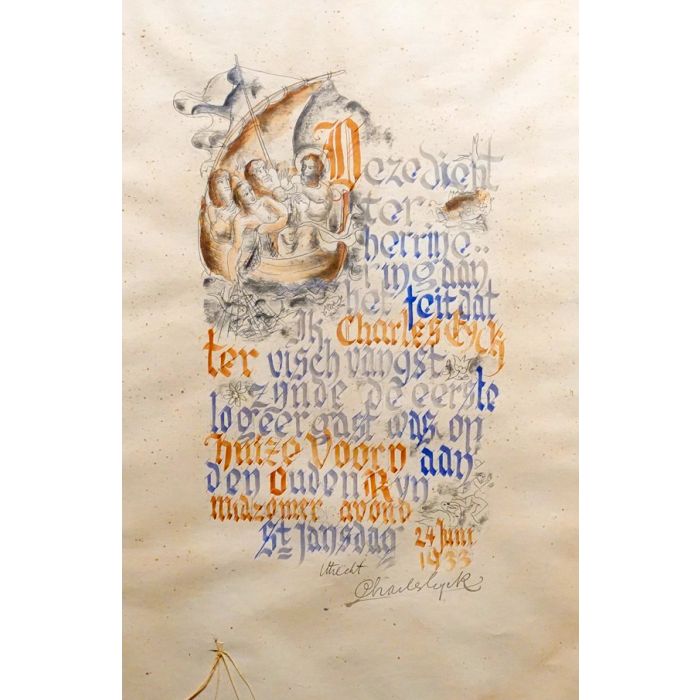 Deze dient
ter
herrine..
ring aan
het feit dat
Ik Charles Eyck
ter vischvangst
zynde de eerste
logeergast was op
huize Voorn aan
den Ouden Ryn
midzomer avond
St Jansdag 24 Juni
1933
Utrecht
Charles Eyck